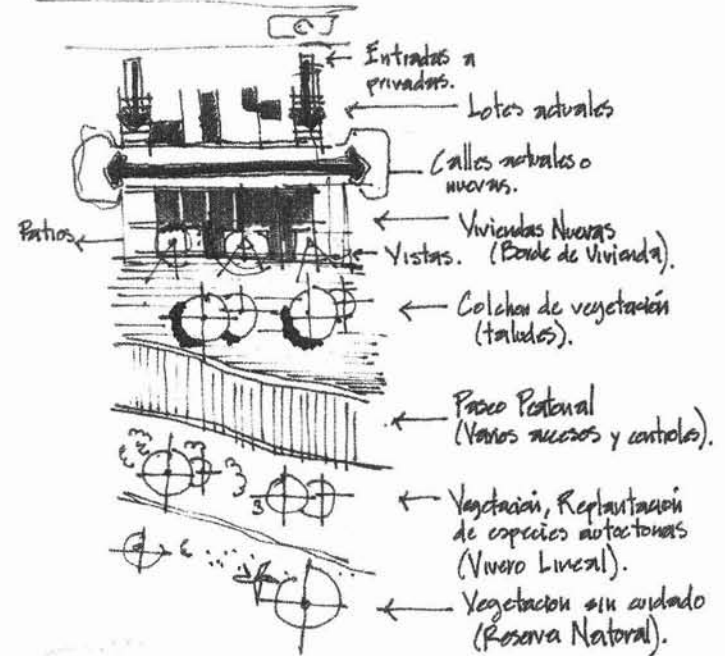 Entradas a
privadas.
Lotes actuales
Calles actuales o
nuevas.
Viviendas Nuevas
(Borde de Vivienda).
Patios
Vistas.
Colchon de vegetación
(taludes).
Paseo Peatonal
(Varios accesos y controles).
Vegetación, Replantación
de especies autoctonas
(Vivero Lineal).
Vegetacion sin cuidado
(Reserva Natural).